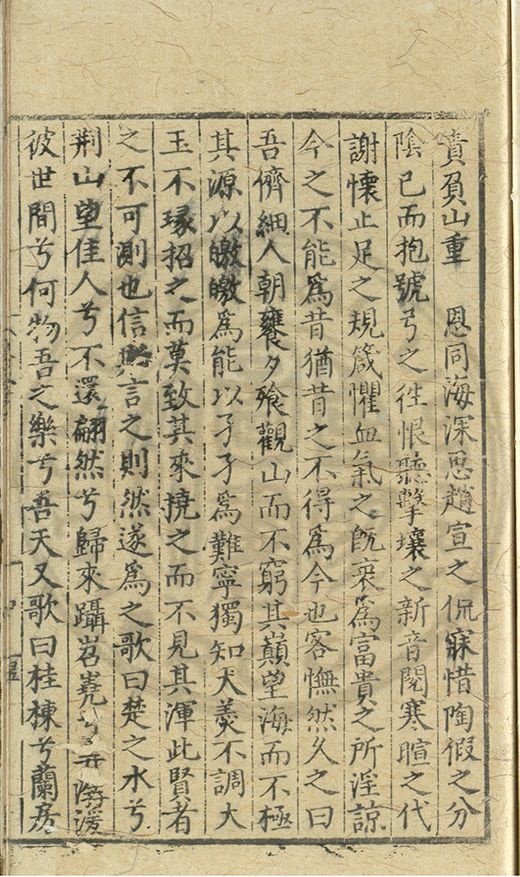 責負山重　恩同海深思趙宣之侃寐惜陶假之分
陰已而抱號弓之徃恨聽擊壤之新音閱寒暄之代
謝懷止足之規箴懼血氣之旣衰爲富貴之所淫諒
今之不能爲昔猶昔之不得爲今也客憮然久之曰
吾儕細人朝饔夕飱觀山而不窮其巔望海而不極
其源以皦皦爲能以孑孑爲難寧獨知大羹不調大
玉不琢招之而莫致其來撓之而不見其渾此賢者
之不可測也信點言之則然遂爲之歌曰楚之水兮
荆山望佳人兮不還翩然兮歸來躡岧嶤兮
彼世間兮何物吾之樂兮吾天又歌曰桂棟兮蘭房